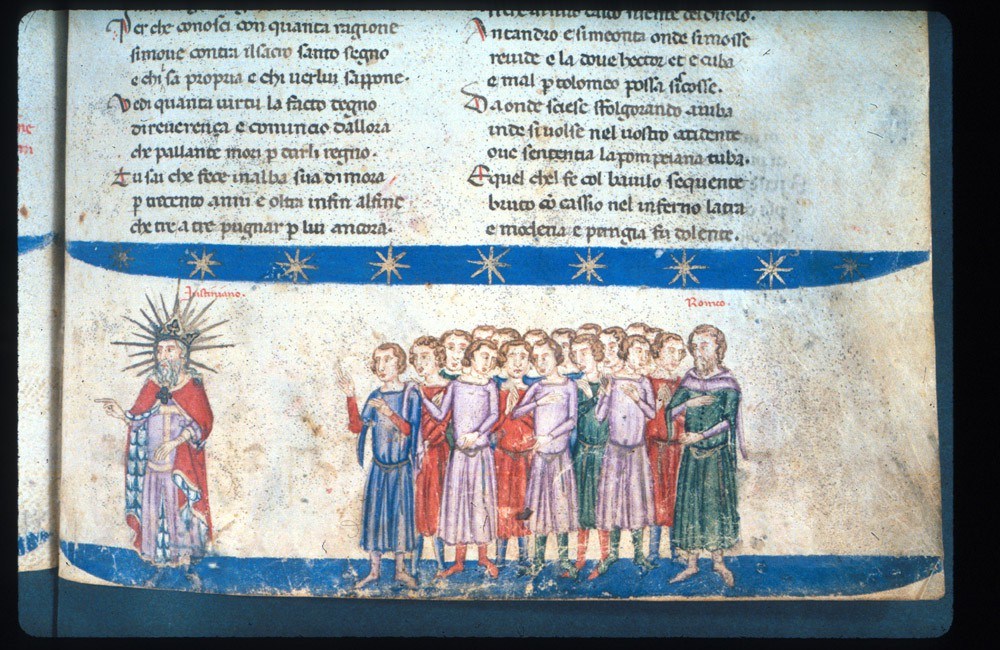 Per che conosci con quanta ragione
simoue contra ilsacro santo segno
e chi sa propria e chi uerlui sappone.
Vedi quanta uirtu la facto degno
direuerença e comincio dallora
che pallante mori p darli regno.
Tu sai che fece inalba sua dimora
p trecento anni e oltra infin alfine
che tre a tre pugnar p lui ancora.
Antandro e simeonta onde simosse
reuide e la doue hector et e cuba
e mal p tolomeo possa scosse.
Da onde scese folgorando
inde si uolse nel uostro
oue sententia la pompeiana tuba.
Equel chel fe col baiulo sequente
bruto cō cassio nel inferno latra
e modena e perugia fu dolente.
Justiniano.
Romeo.